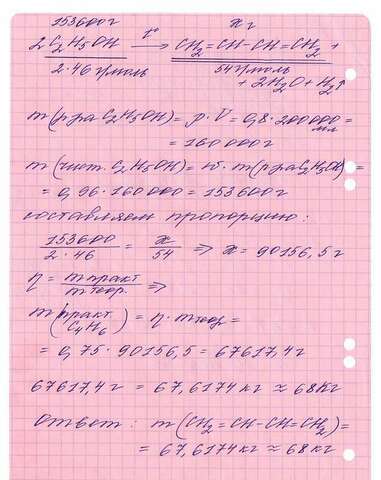 153600г x г
2C₂H₅OH —t°→ CH₂=CH-CH=CH₂ +
2·46 г/моль 54г/моль
+ 2H₂O + H₂↑
m(р-ра C₂H₅OH) = ρ·V = 0,8·200000 =
мл
= 160000г
m(чист. C₂H₅OH) = ω·m(р-ра C₂H₅OH) =
= 0,96·160000 = 153600г
составляем пропорцию:
153600/2·46 = x/54 => x = 90156,5г
η = m практ/m теор. =>
m(практ C₄H₆) = η·m теор =
= 0,75·90156,5 = 67617,4г
67617,4г = 67,6174кг ≈ 68кг
Ответ: m(CH₂=CH-CH=CH₂) =
= 67,6174кг ≈ 68кг